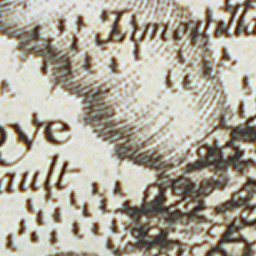 Irmouilla
oye
ault